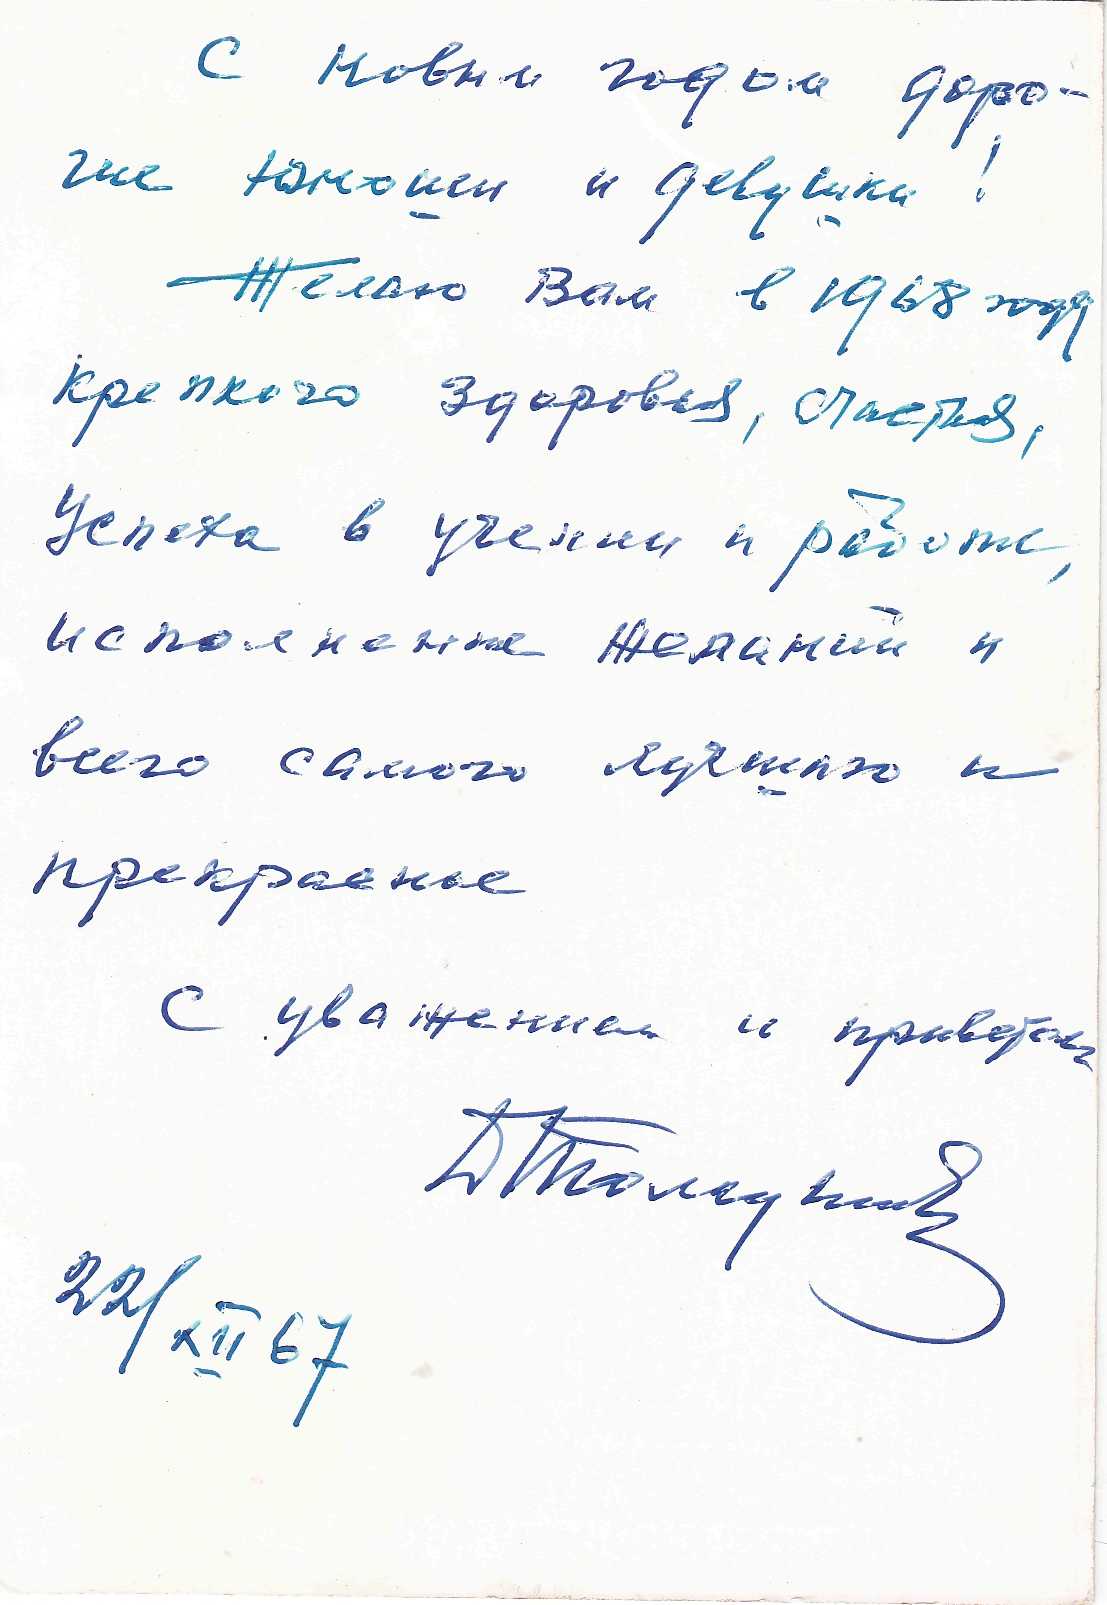 С новым годом доро-
гие юноши и девушки!
Желаю Вам в 1968 году
крепкого здоровья, счастья,
успеха в учении и работе,
исполнение желаний и
всего самого лучшего и
прекрасные
С уважением и приветом
22/XII 67